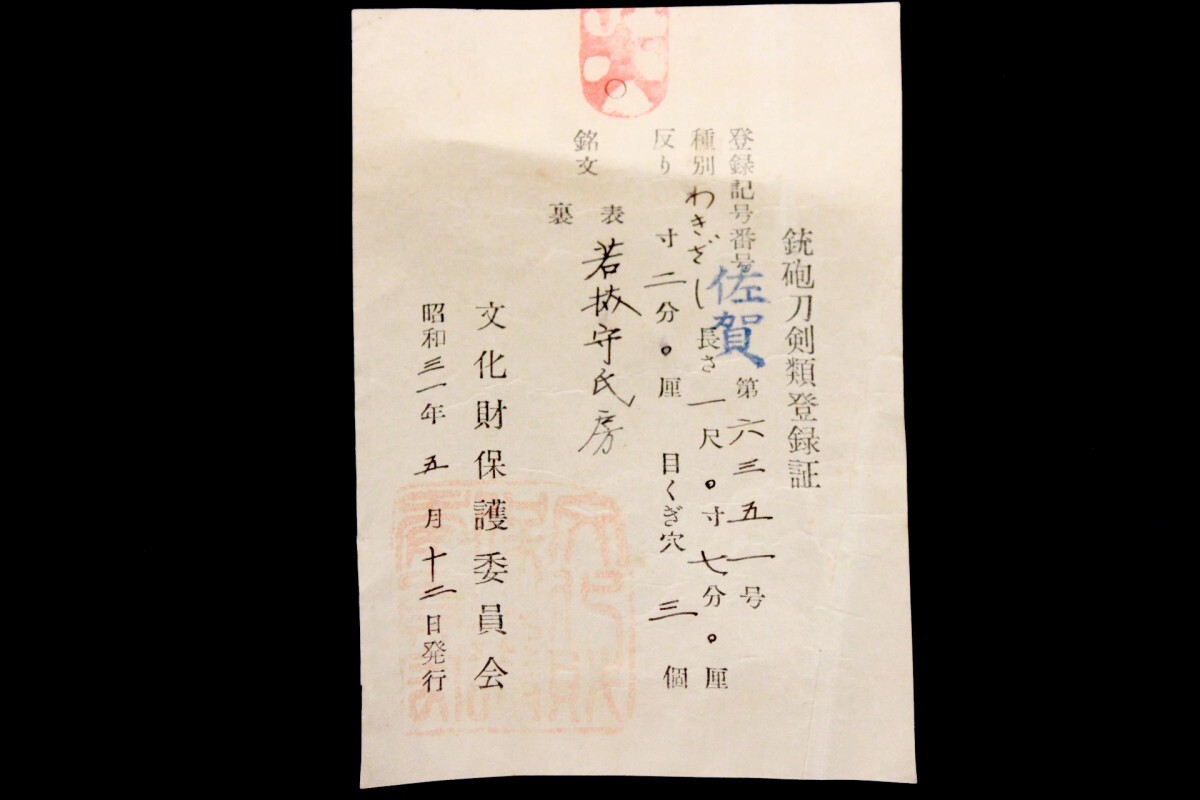 銃砲刀剣類登録証
登録記号番号 佐賀 第六三五一号
種別 わきざし 長さ 一尺〇寸七分〇厘
反り 寸二分〇厘 目くぎ穴 三個
銘文 表 若狭守氏房
裏
文化財保護委員会
昭和三一年五月十二日発行